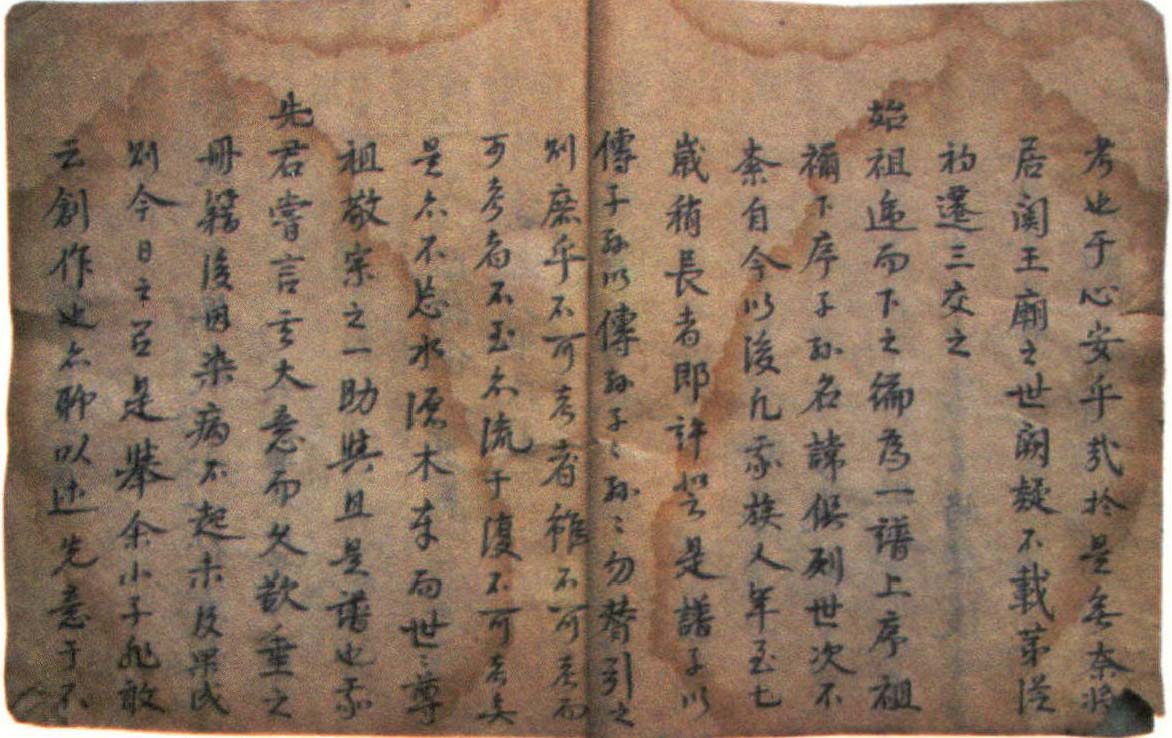 考也于心安乎哉於是無奈將
居関王廟之世闕疑不載第從
初遷三交之
始祖遞而下之编為一譜上序祖
禰下序子孫名諱俱列世次不
紊自今以後凡我族人年至七
歲稍長者即許登是譜子以
傳子孫以傳孫子〻孫〻勿替引之
則庶乎不可考者雖不可考而
可考者不至亦流于復不可考矣
是亦不忘水源木本而世〻尊
祖敬宗之一助與且是譜也我
先君嘗言言大意而久欲垂之
冊籍後因染病不起未及果氏
則今日之是舉余小子非敢
云創作也亦聊以述先意于不